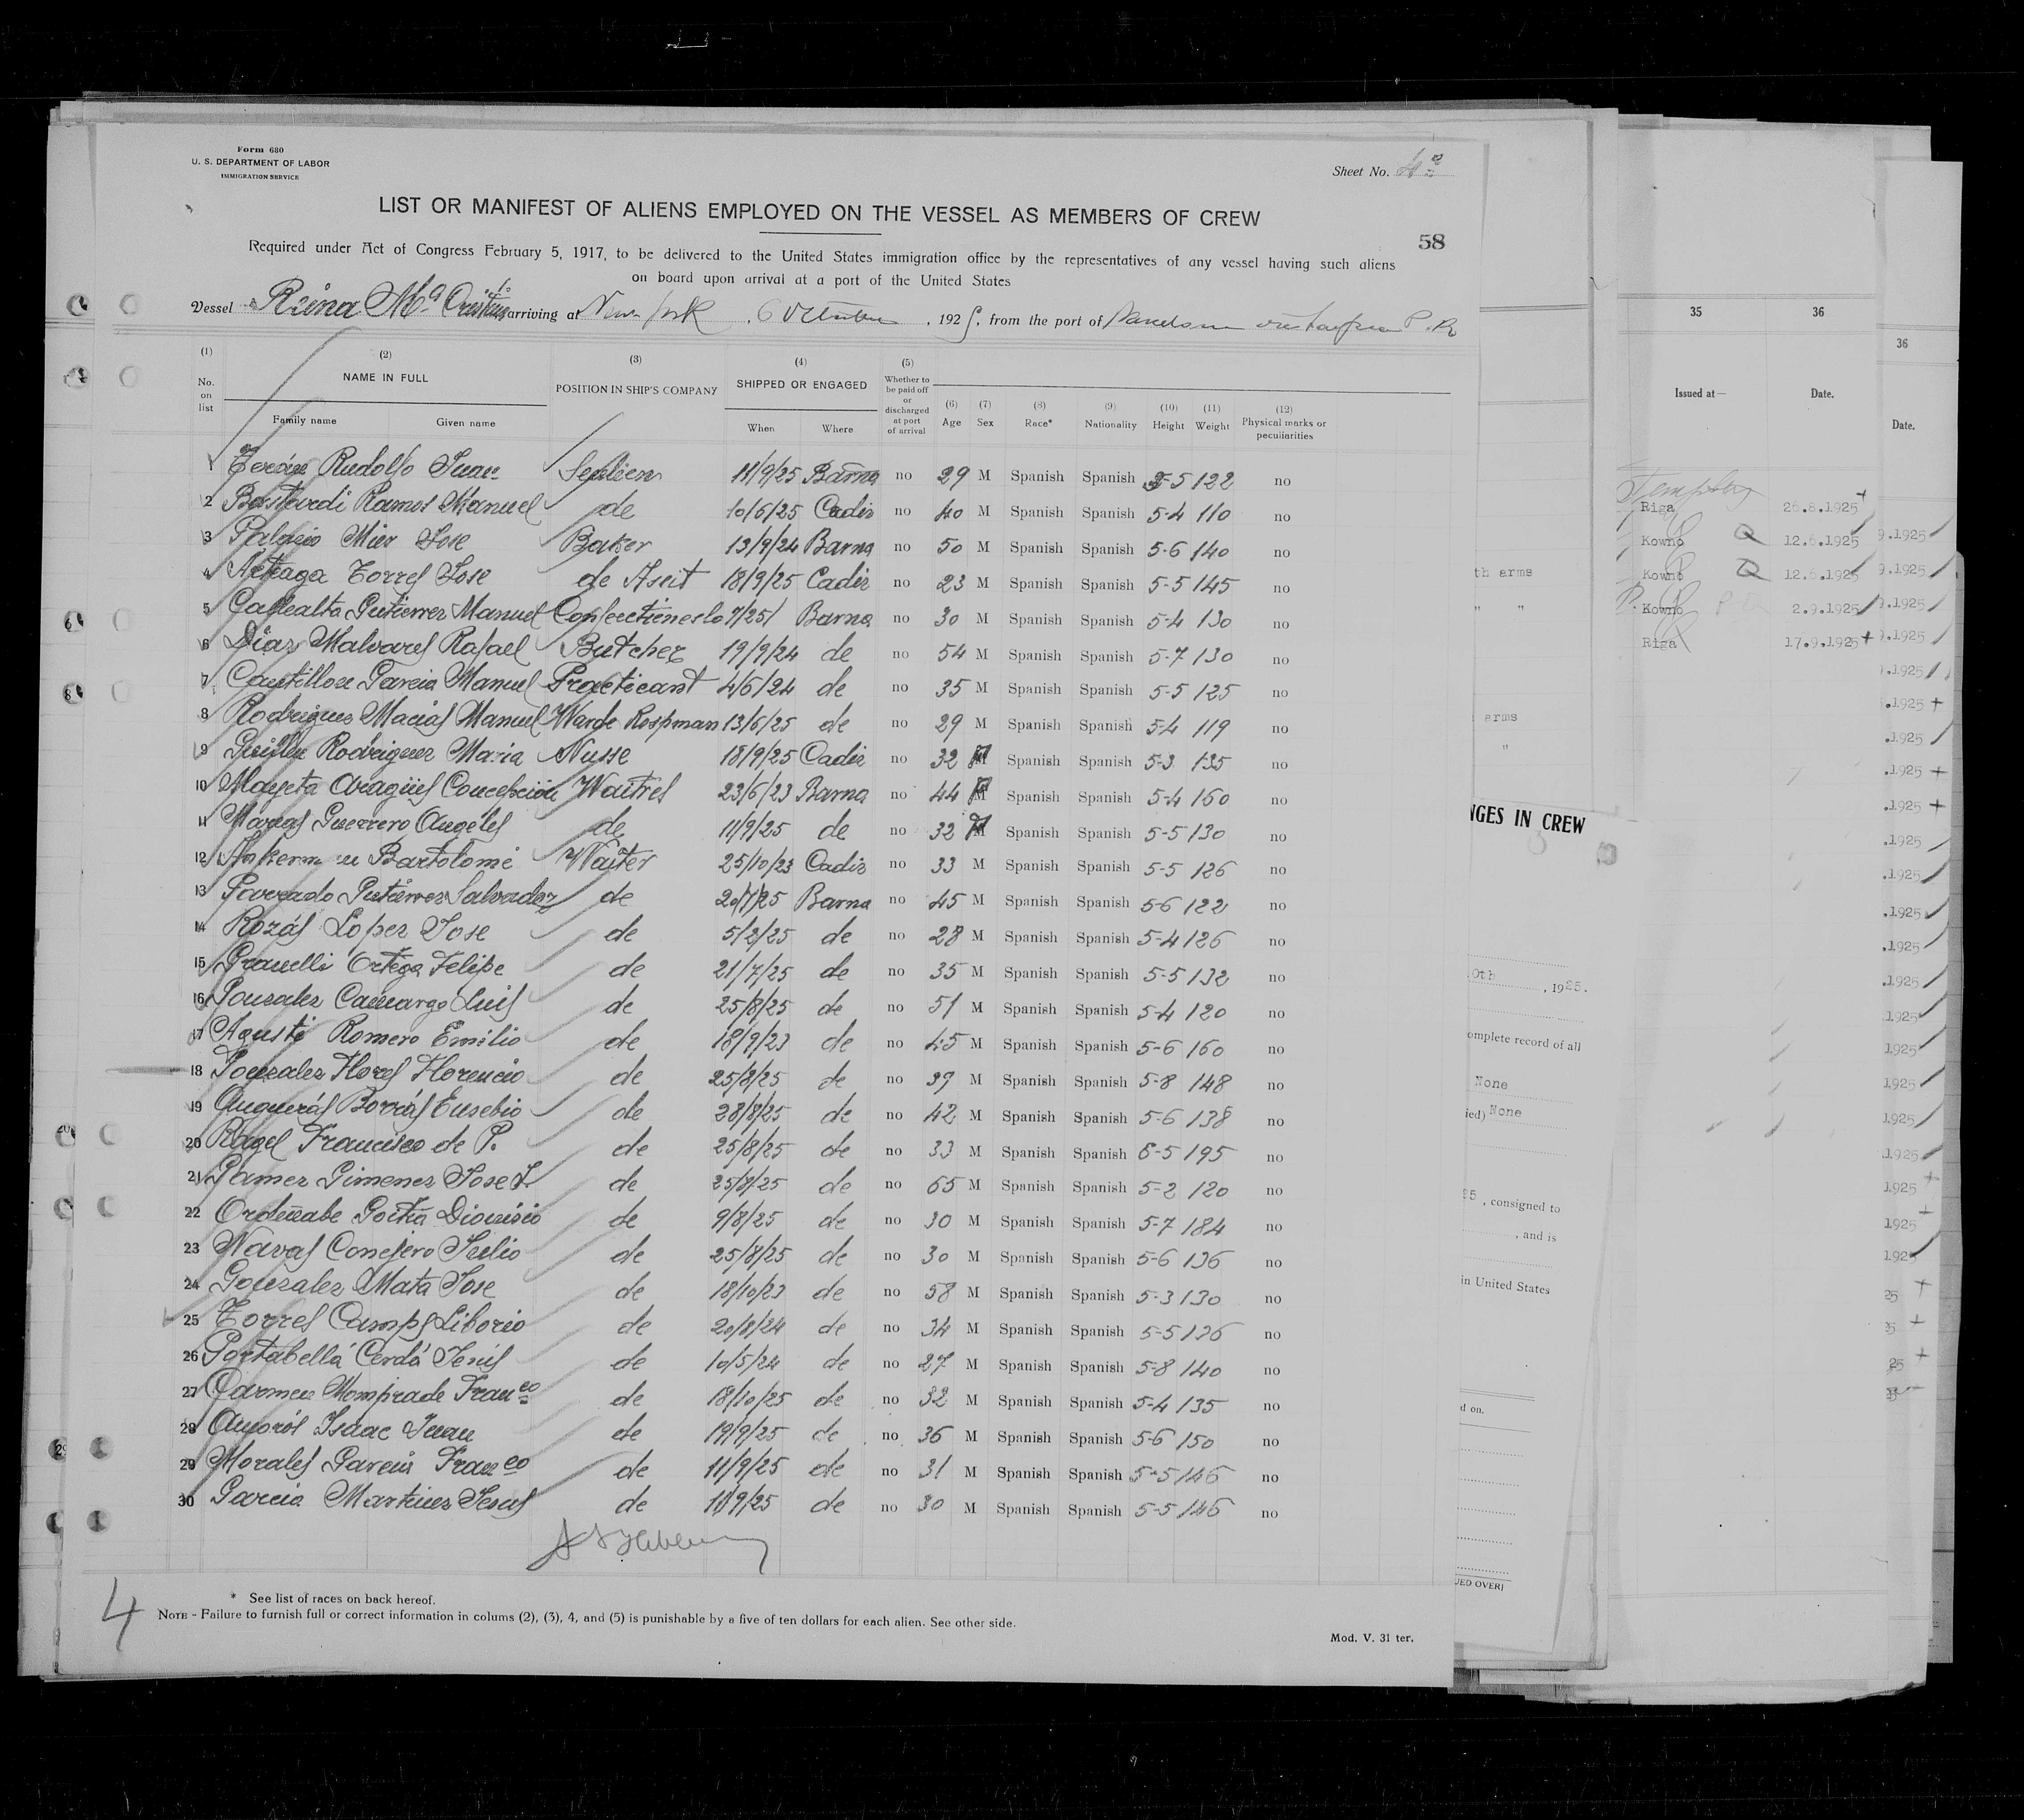 Form 680
U. S. DEPARTMENT OF LABOR
IMMIGRATION SERVICE
Sheet No. 4º
LIST OR MANIFEST OF ALIENS EMPLOYED ON THE VESSEL AS MEMBERS OF CREW
58
Required under Act of Congress February 5, 1917, to be delivered to the United States immigration office by the representatives of any vessel having such aliens
on board upon arrival at a port of the United States
Vessel Reina Mª Cristina arriving at New York, 6 October, 1925, from the port of P. R
(1) No. on list
(2) NAME IN FULL Family name Given name
(3) POSITION IN SHIP'S COMPANY
(4) SHIPPED OR ENGAGED When Where
(5) Whether to be paid off or discharged at port of arrival
(6) Age (7) Sex (8) Race* (9) Nationality (10) Height (11) Weight (12) Physical marks or peculiarities
1 Terán Rudolfo Juan 11/9/25 Barna no 29 M Spanish Spanish 5-5 122 no
2 Bastardi Ramos Manuel de 10/6/25 Cadis no 40 M Spanish Spanish 5-4 110 no
3 Palacio Mier Jose Baker 13/9/24 Barna no 50 M Spanish Spanish 5-6 140 no
4 Arteaga Torres Jose de Asist 18/9/25 Cadiz no 23 M Spanish Spanish 5-5 145 no
5 Gutierrez Manuel 7/25/ Barna no 30 M Spanish Spanish 5-4 130 no
6 Dias Malvares Rafael Butcher 19/9/24 de no 54 M Spanish Spanish 5-7 130 no
7 Cantillon Garcia Manuel Practicant 4/6/24 de no 35 M Spanish Spanish 5-5 125 no
8 Rodrigues Macias Manuel Warde Rospman 13/6/25 de no 29 M Spanish Spanish 5-4 119 no
9 Rodriguez Maria Nusse 18/9/25 Cadiz no 32 Spanish Spanish 5-3 135 no
10 Mayeta Aragües Concebcion Waitres 23/6/23 Barna no 44 Spanish Spanish 5-4 160 no
11 Guerrero Angeles de 11/9/25 de no 32 Spanish Spanish 5-5 130 no
12 Bartolomé Waiter 25/10/23 Cadis no 33 M Spanish Spanish 5-5 126 no
13 Gutierrez Salvador de 20/7/25 Barna no 45 M Spanish Spanish 5-6 122 no
14 Rozás Lopez Jose de 5/2/25 de no 28 M Spanish Spanish 5-4 126 no
15 Granelli Ortega Felipe de 21/7/25 de no 35 M Spanish Spanish 5-5 132 no
16 Gonzalez Camargo Luis de 25/8/25 de no 51 M Spanish Spanish 5-4 120 no
17 Agusti Romero Emilio de 18/9/23 de no 45 M Spanish Spanish 5-6 160 no
18 Gonzalez Flores Florencio de 25/8/25 de no 39 M Spanish Spanish 5-8 148 no
19 Anguerás Borrás Eusebio de 28/8/25 de no 42 M Spanish Spanish 5-6 138 no
20 Ragel Francisco de P. de 25/8/25 de no 33 M Spanish Spanish 6-5 195 no
21 Gamez Gimenez Jose de 25/8/25 de no 65 M Spanish Spanish 5-2 120 no
22 Ordeñabe Goitia Dionisio de 9/8/25 de no 30 M Spanish Spanish 5-7 184 no
23 Navas Conejero Julio de 25/8/25 de no 30 M Spanish Spanish 5-6 136 no
24 Gonzalez Mata Jose de 18/10/23 de no 58 M Spanish Spanish 5-3 130 no
25 Torres Camps Liborio de 20/8/24 de no 34 M Spanish Spanish 5-5 136 no
26 Portabella Cerdá Jenis de 10/5/24 de no 27 M Spanish Spanish 5-8 140 no
27 Carmen Momprade Franco de 18/10/25 de no 32 M Spanish Spanish 5-4 135 no
28 Amorós Isaac Juan de 19/9/25 de no 36 M Spanish Spanish 5-6 150 no
29 Morales Garcia Franco de 11/9/25 de no 31 M Spanish Spanish 5-5 146 no
30 Garcia Martinez Jesus de 11/9/25 de no 30 M Spanish Spanish 5-5 146 no
4
* See list of races on back hereof.
NOTE - Failure to furnish full or correct information in colums (2), (3), 4, and (5) is punishable by a five of ten dollars for each alien. See other side.
Mod. V. 31 ter.
th arms
" "
arms
"
NGES IN CREW
, 1925.
omplete record of all
None
ied) None
25, consigned to
, and is
in United States
d on.
UED OVER)
35 36
Issued at— Date.
Riga 26.8.1925
Kowno 12.6.1925
Kowno 12.6.1925
Kowno 2.9.1925
Riga 17.9.1925
36
Date.
9.1925
9.1925
9.1925
9.1925
.1925
.1925
.1925
.1925
.1925
.1925
.1925
.1925
.1925
.1925
1925
1925
1925
1925
1925
1925
1925
1925
25
25
25
25